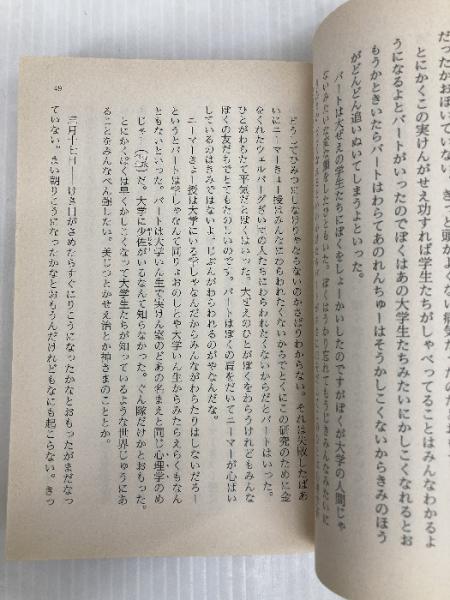 だったかおぼいていない。きっと頭がよくない病気だ
とにかくこの実けんがせえ功すれば学生たちがしゃべってることはみんなわかるよ
うになるよとバートがいったのでぼくはあの大学生たちみたいにかしこくなれるとお
もうかときいたらバートはわらてあのれんちゅーはそうかしこくないからきみのほう
がどんどん追いぬいてしまうよといった。
バートは大ぜえの学生たちにぼくをしょーかいしたのですがぼくが大学の人間じゃ
ないみたいな変な顔をしたひともいた。ぼくはうっかり忘れてもう
どうしてひみつにしなければならないのかさぱりわからない。それは失敗したばあ
いにニーマーきょー授はみんなにわらわれたくないからでとくにこの研究のために金
をくれたウェルバーグざい団の人たちにわらわれたくないからだとバートはいった。
ひとがわらたて平気だとぼくはいった。大ぜえのひとがぼくをわらうけれどもみんな
ぼくの友だちでとてもたのしいのである。バートはぼくの肩をだいてニーマーが心ぱい
しているのはきみではないよ、じぶんがわらわれるのがやなんだな。
ニーマーきょー授は大学にいるがくしゃなんだからみんながわらたりはしないだろー
というとバートは学しゃなんて同りょおのしとや大学いん生からみたらえらくもなん
ともないといった。バートは大学いん生で実けん室のどあのなまえと同じ心理学のめ
じゃー(少佐)だ。大学に少佐がいるなんて知らなかった。ぐん隊だけかとおもった。
とにかくぼくは早くかしこくなって大学生たちが知っているような世界じゅうにあ
ることをみんなべん強したい。美じつとかせえ治とか神さまのこととか。
三月十七日――けさ目がさめたらすぐにりこうになったかなとおもったがまだなっ
ていない。まい朝りこうになったかなとおもうんだけれどもなにも起こらない。きっ
49